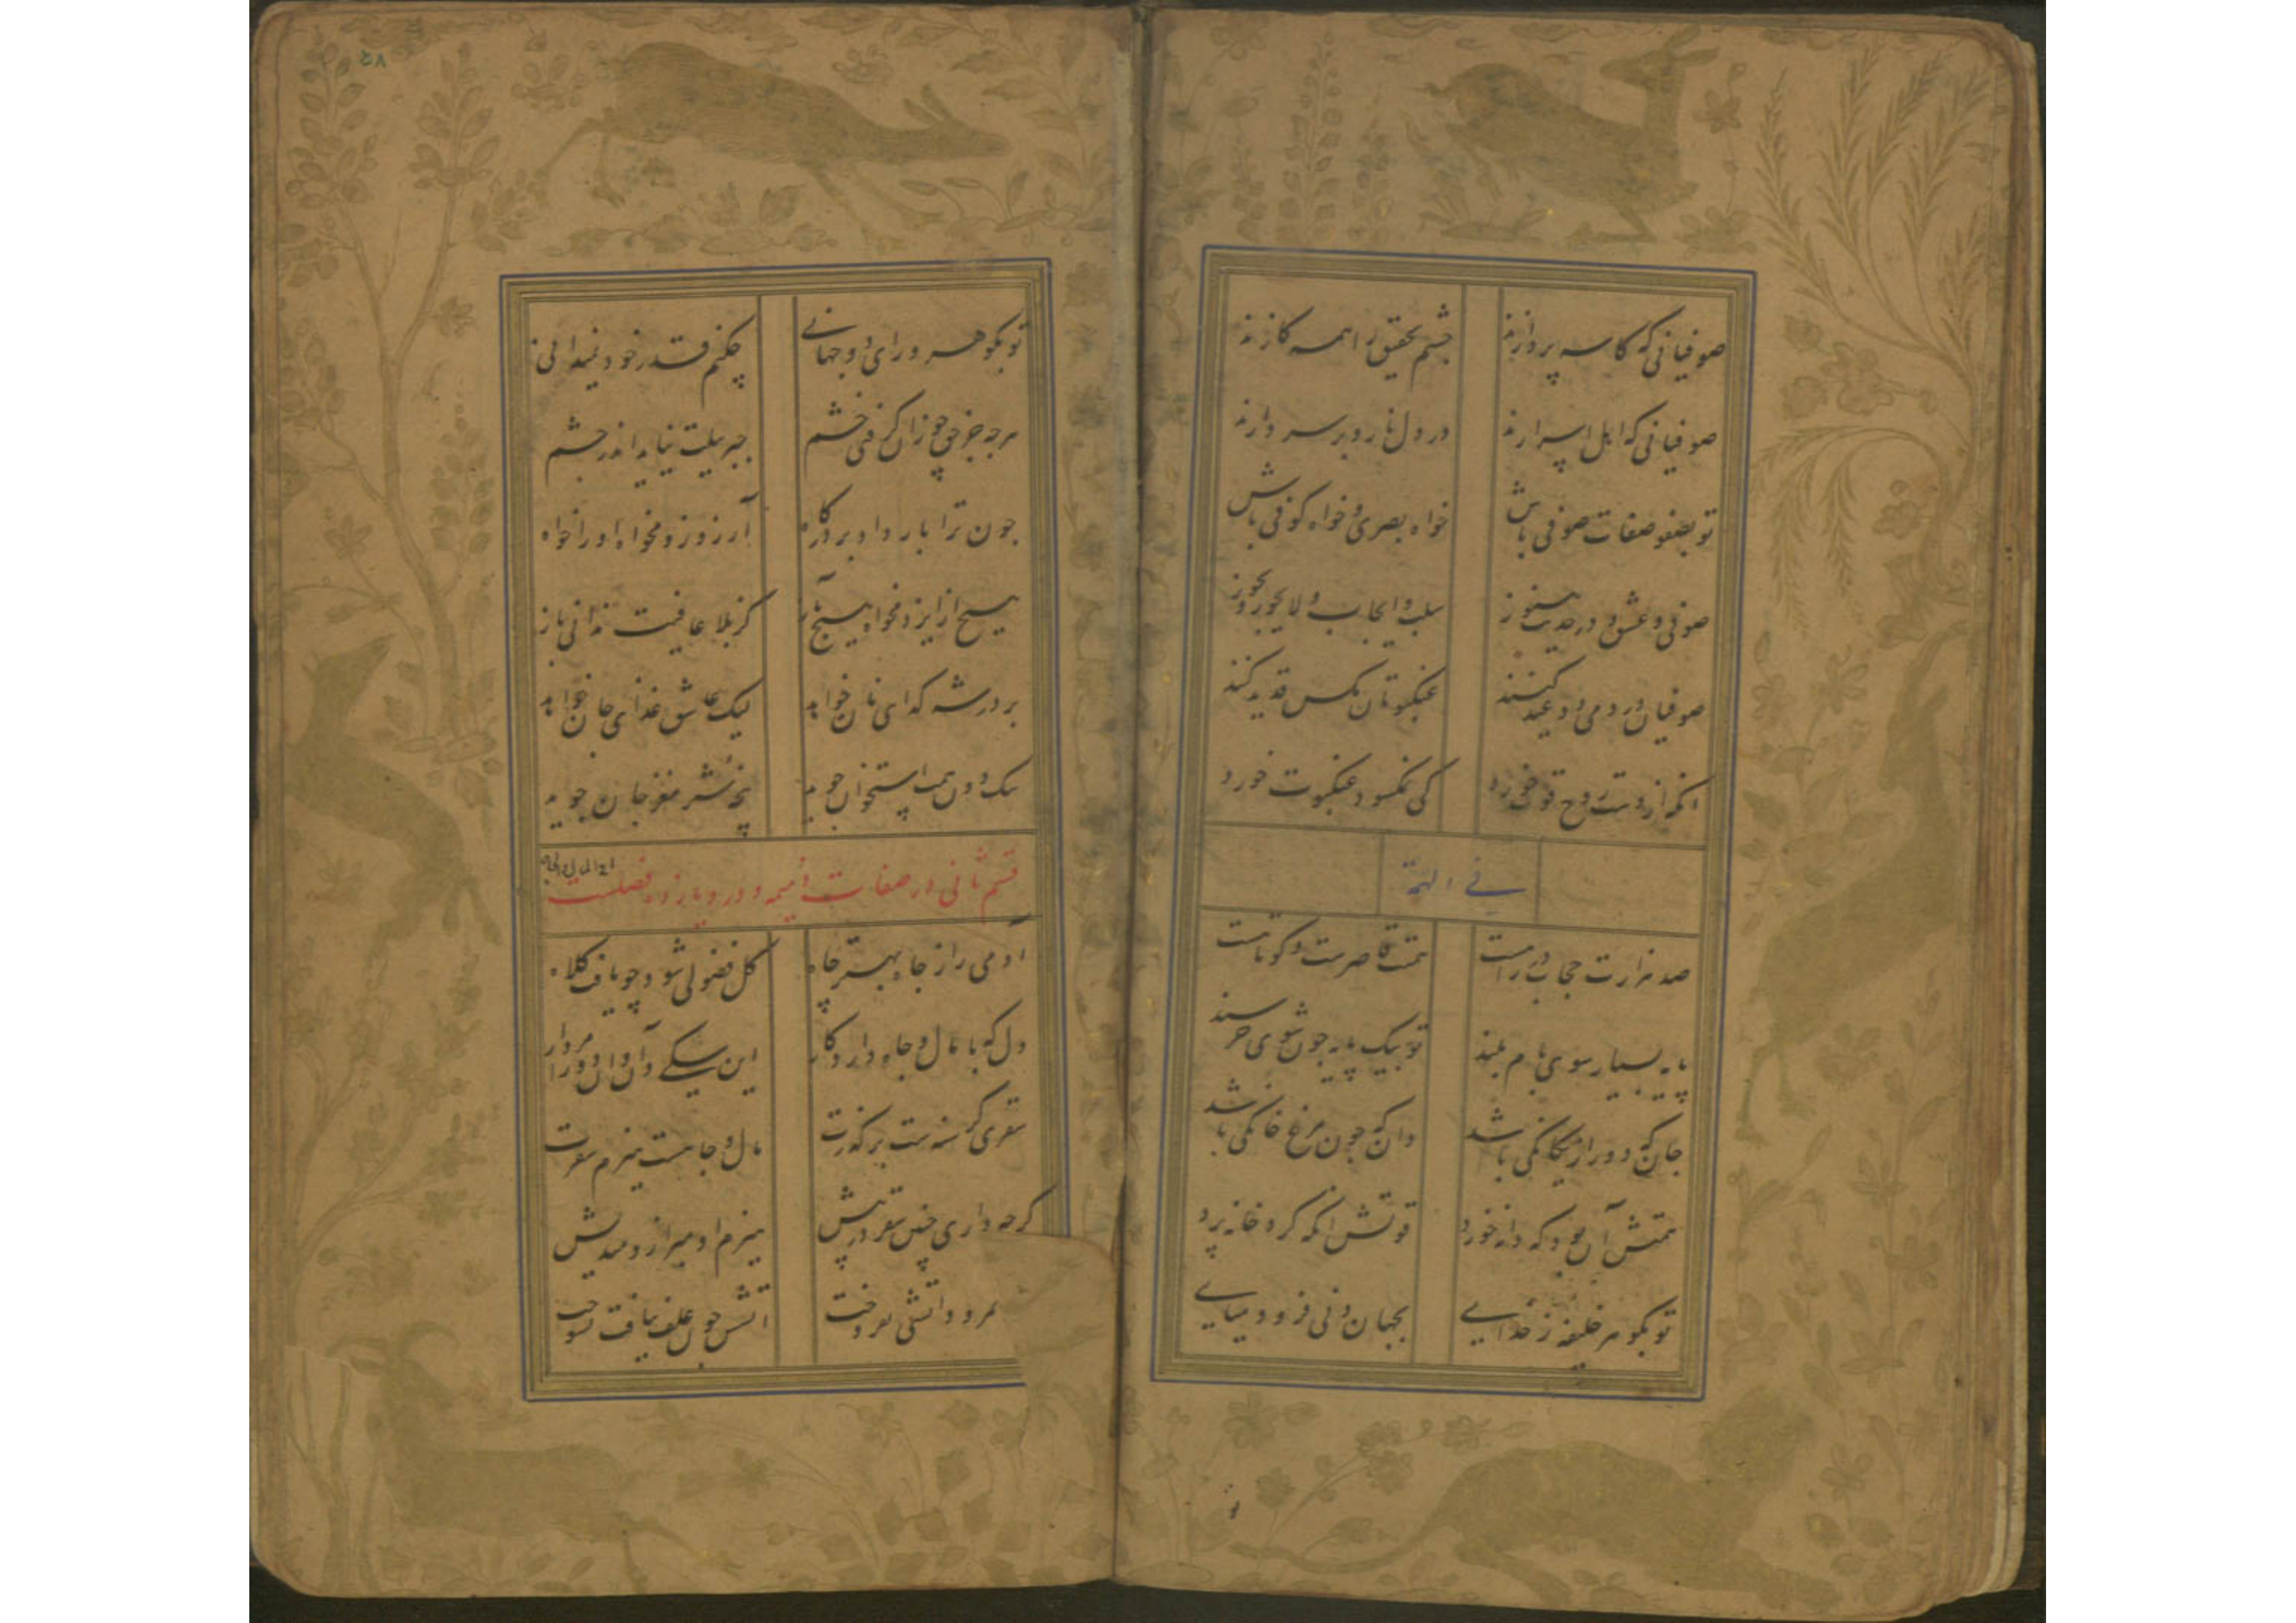 صوفیانی که کاسه پردازند چشم تحقیق را همه کازند
صوفیانی که اهل اسرارند در دل نار و بر سر دارند
تو بصفو صفات صوفی باش خواه بصری و خواه کوفی باش
صوفی و عشق و در حدیث هنوز سلب و ایجاب و لایجوز و یجوز
صوفیان در دمی دو عید کنند عنکبوتان مکس قدید کنند
انکه از دست روح قوت خورد کی نمکسود عنکبوت خورد
فی الهمة
صد هزارت حجاب در راهست همتت قاصرست و کوتاهست
پایه بسیار سوی بام بلند تو بیک پایه چون شوی خرسند
جان که دور از یکانکی باشد دان که چون مرغ خانکی باشد
همتش آن بود که دانه خورد قوتش انکه کرد خانه پرد
تو بکوهر خلیفه ز خدایی بجهان دنی فرود میایی
۵۸
تو بکوهر ورای دو جهانی چکنم قدر خود نمیدانی
هرچه جز حق چو زان کرفتی خشم جبریلت نیاید اندر چشم
چون ترا بار داد بر درکاه آرزو زو مخواه او را خواه
هیچ از ایزد مخواه هیچ نیاز کز بلا عافیت ندانی باز
بر در شه کدای نان خواهد لیک عاشق غذای جان خواهد
سک دون همت استخوان جوید پنجه شیر مغز جان جوید
قسم ثانی در صفات ذمیمه و در و یازده فصلست
آدمی را ز جاه بهتر چاه کل فضولی شود چو یافت کلاه
دل که با مال و جاه دارد کار این سکی دان و آن دو را مردار
سقری کرسنه ست برکذرت مال و جاهست هیزم سقرت
کرچه داری چنین سقر در پیش هیزم او میر ازو مندیش
نمرود اتشی افروخت اتش چون علف نیافت نسوخت